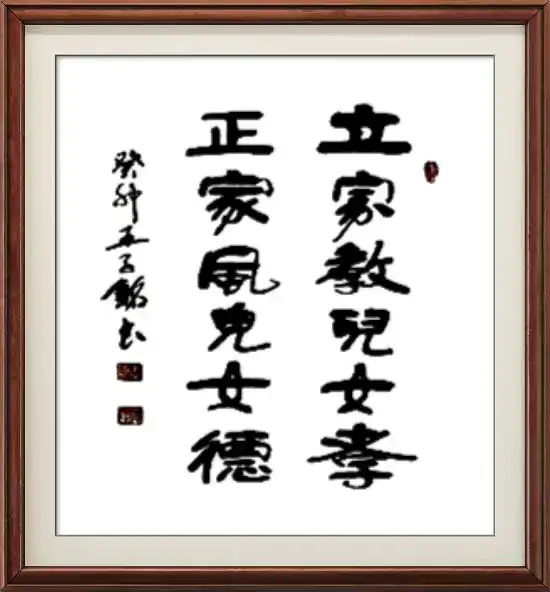 立家教兒女孝
正家風兒女德
癸卯王子銘书